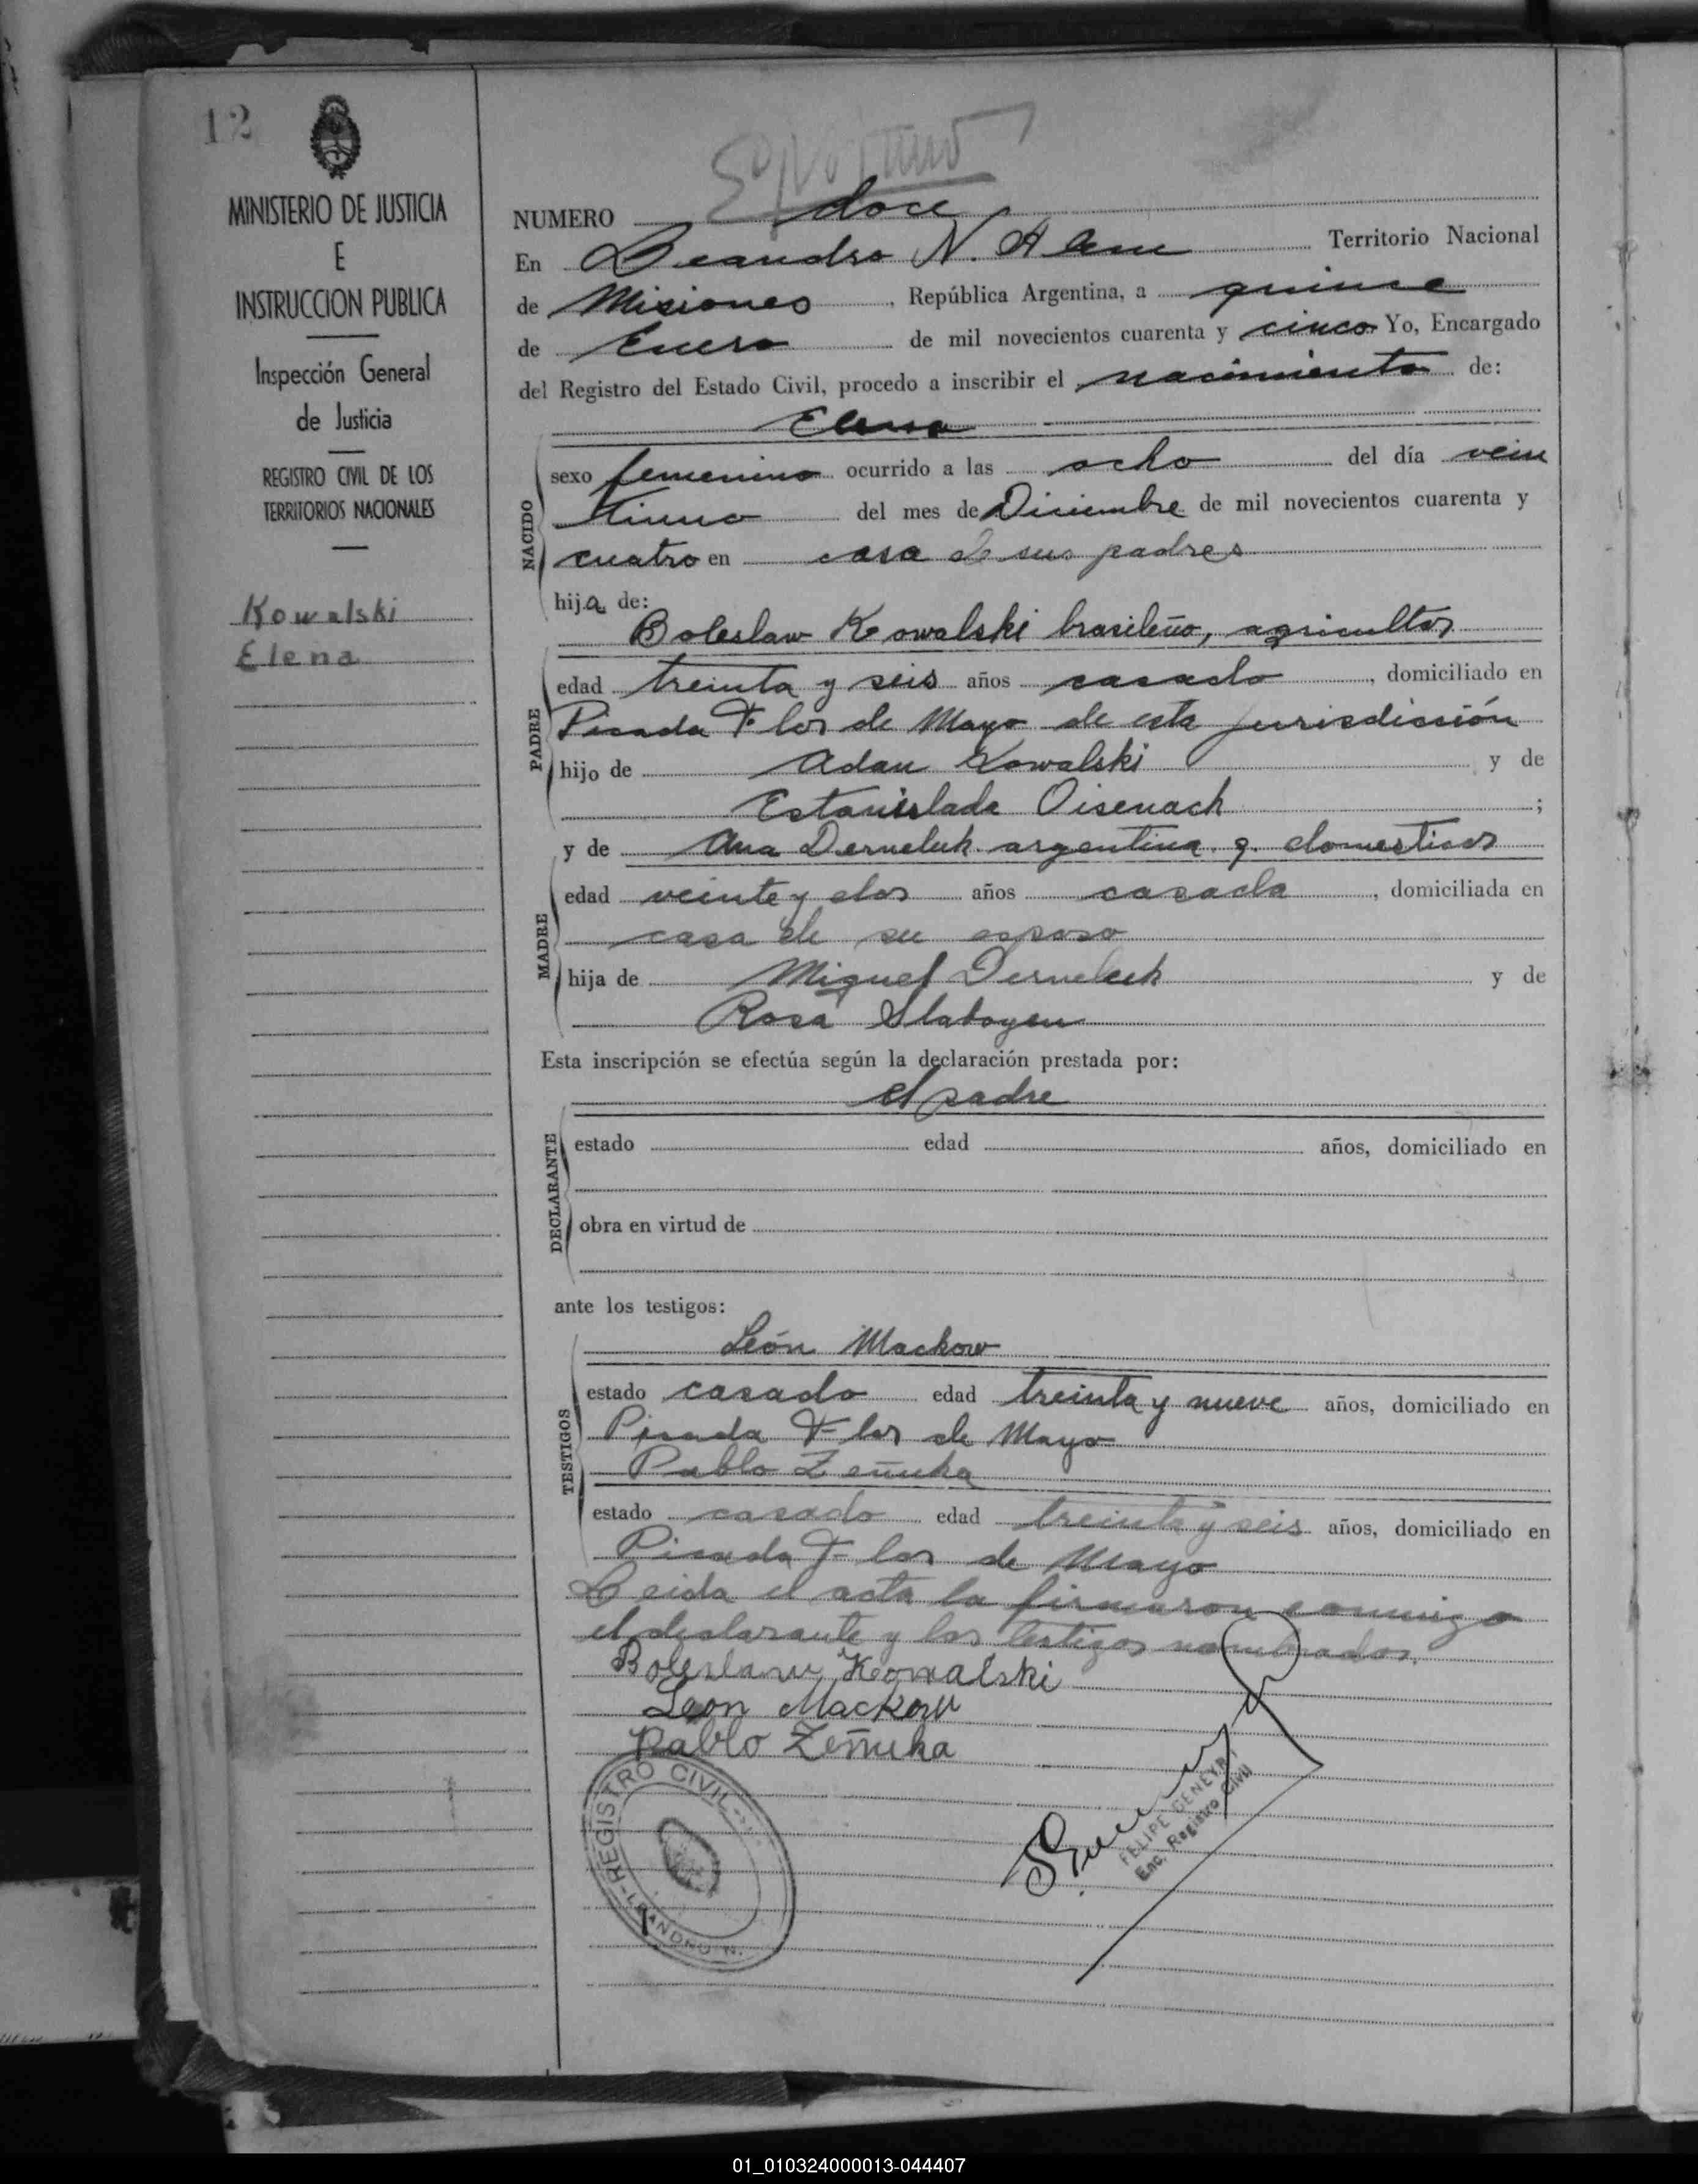 12
MINISTERIO DE JUSTICIA
E
INSTRUCCION PUBLICA
Inspección General
de Justicia
REGISTRO CIVIL DE LOS
TERRITORIOS NACIONALES
Kowalski
Elena
NUMERO doce
En Leandro N. Alem Territorio Nacional
de Misiones, República Argentina, a quince
de Enero de mil novecientos cuarenta y cinco Yo, Encargado
del Registro del Estado Civil, procedo a inscribir el nacimiento de:
Elena
NACIDO
sexo femenino ocurrido a las ocho del día vein
tiuno del mes de Diciembre de mil novecientos cuarenta y
cuatro en casa de sus padres
hija de:
Boleslaw Kowalski brasileño, agricultor
PADRE
edad treinta y seis años casado, domiciliado en
Picada Flor de Mayo de esta jurisdicción
hijo de Adan Kowalski y de
Estanislada Oisenach;
y de Ana Derneluk argentina q. domesticos
MADRE
edad veinte y dos años casada, domiciliada en
casa de su esposo
hija de Miguel Derneluk y de
Rosa Slaboyen
Esta inscripción se efectúa según la declaración prestada por:
el padre
DECLARANTE
estado edad años, domiciliado en
obra en virtud de
ante los testigos:
León Mackow
TESTIGOS
estado casado edad treinta y nueve años, domiciliado en
Picada Flor de Mayo
Pablo Zeñuka
estado casado edad treinta y seis años, domiciliado en
Picada Flor de Mayo
Leida el acta la firmaron conmigo
el declarante y los testigos nombrados.
Boleslaw Kowalski
Leon Mackow
Pablo Zeñuka
REGISTRO CIVIL
LEANDRO N.
FELIPE GENEYRI
Enc. Registro Civil
01_010324000013-044407